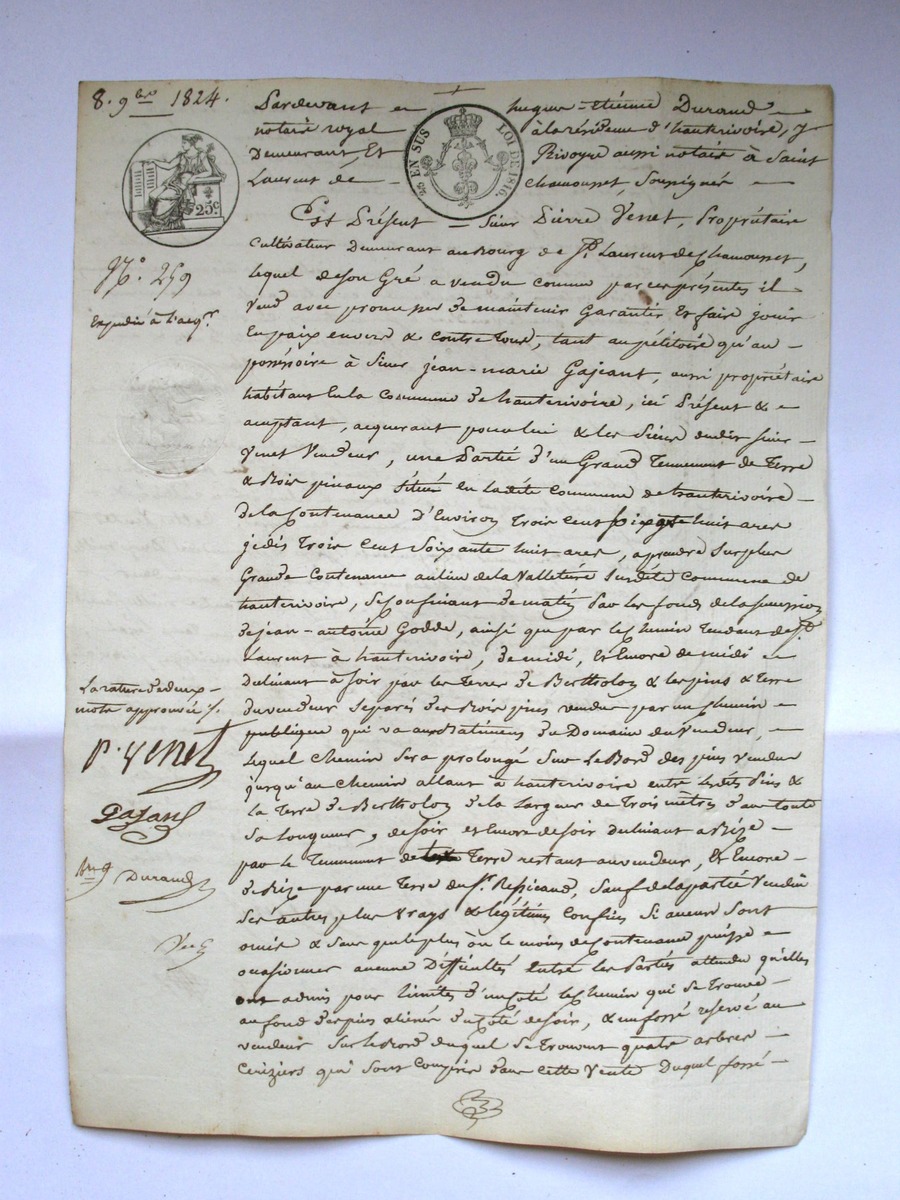 8. 9bre 1824.
Pardevant en hugue-étienne Durand
notaire royal à la résidence d'hauterivoire, y
Demeurant, Et Rivoyre aussi notaire à Saint
Laurent de Chamousset, Soussignés
25 EN SUS LOI DE 1816.
25c
Est Présent Sieur Pierre Venet, Propriétaire
Cultivateur Demeurant au Bourg de St. Laurent de Chamousset,
N.° 259
lequel de son Gré a vendu comme par ces présentes il
Vend avec promesse de maintenir Garantir Et faire jouir
Expédié à l'acqr.
En paix envers & contre tous, tant au pétitoire qu'au
possessoire à Sieur jean-marie Gajeant, aussi propriétaire
habitant En la Commune de hauterivoire, ici Présent &
acceptant, acquerant pour lui & les Siens dudit Sieur
Venet Vendeur, une Partie d'un Grand Tennement de Terre
& Bois pinaux Situé En ladite Commune de hauterivoire
De la Contenance D'Environ Trois Cent soixante huit ares
je dis Trois Cent Soixante huit ares, a prendre Sur plus
Grande Contenance au lieu de la Valletière Susdite Commune de
hauterivoire, Se Confinant De matin Par les fonds de la succession
de jean-antoine Godde, ainsi que par le Chemin Tendant de St
Laurent à hauterivoire, De midi, Et Encore de midi
Déclinant à Soir par les Terres De Bertholon & les pins & terre
La rature de deux
mots approuvée
du vendeur Separés des Bois pins vendus par un chemin
publique qui va aux Batimens du Domaine du Vendeur,
P. Venet
lequel Chemin Sera prolongé Sur le Bord des pins vendus
jusqu'au Chemin allant à hauterivoire entre lesdits Pins &
la Terre De Bertholon de la Largeur de Trois mètres dans toute
Gajant
Sa Longueur, de Soir et Encore de Soir Déclinant a Bize
par le Tennement de Terre restant au vendeur, Et Encore
Durand
de Bize par une Terre du Sr. Ressicaud, Sauf de la partie Vendue
Ses autres plus Vrays & légitimes Confins Si aucuns Sont
omis & Sans que le plus où le moins de Contenance puisse
occasionner aucune Difficultés Entre les Parties attendu qu'elles
ont admis pour limites d'un Coté le Chemin qui Se Trouve
au fond des pins aliénés du Coté de Soir, & un fossé reservé au
vendeur Sur le Bord duquel Se Trouvent quatre arbres
Ceriziers qui Sont Compris dans Cette Vente Duquel fossé